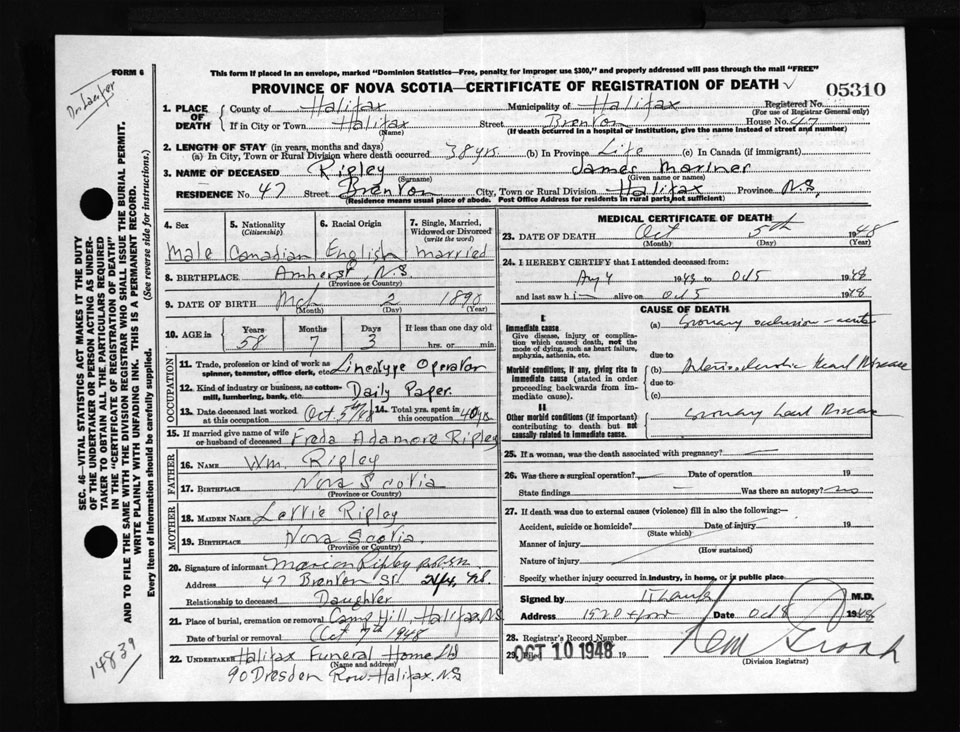 FORM 6
This form if placed in an envelope, marked "Dominion Statistics—Free, penalty for improper use $300," and properly addressed will pass through the mail "FREE"
PROVINCE OF NOVA SCOTIA—CERTIFICATE OF REGISTRATION OF DEATH
05310
1. PLACE OF DEATH
County of Halifax Municipality of Halifax Registered No.
(For use of Registrar General only)
If in City or Town Halifax Street Brenton House No. 47
(Name) (If death occurred in a hospital or institution, give the name instead of street and number)
2. LENGTH OF STAY (in years, months and days)
(a) In City, Town or Rural Division where death occurred 38 yrs. (b) In Province Life (c) In Canada (if immigrant)
3. NAME OF DECEASED Ripley James Mariner
(Surname) (Given name or names)
RESIDENCE No. 47 Street Brenton City, Town or Rural Division Halifax Province N.S.
(Residence means usual place of abode. Post Office Address for residents in rural parts not sufficient)
4. Sex 5. Nationality (Citizenship) 6. Racial Origin 7. Single, Married, Widowed or Divorced (write the word)
Male Canadian English Married
8. BIRTHPLACE Amherst, N.S.
(Province or Country)
9. DATE OF BIRTH Mch 2 1890
(Month) (Day) (Year)
10. AGE in Years Months Days If less than one day old
58 7 3 hrs. or min.
OCCUPATION
11. Trade, profession or kind of work as spinner, teamster, office clerk, etc. Linotype Operator
12. Kind of industry or business, as cotton-mill, lumbering, bank, etc. Daily Paper.
13. Date deceased last worked at this occupation Oct 5th/48 14. Total yrs. spent in this occupation 40 yrs.
15. If married give name of wife or husband of deceased Freda Adamore Ripley
FATHER
16. NAME Wm. Ripley
17. BIRTHPLACE Nova Scotia
(Province or Country)
MOTHER
18. MAIDEN NAME Lettie Ripley
19. BIRTHPLACE Nova Scotia.
(Province or Country)
20. Signature of informant Marion Ripley
Address 47 Brenton St. Hfx, N.S.
Relationship to deceased Daughter
21. Place of burial, cremation or removal Camp Hill, Halifax, N.S.
Date of burial or removal Oct 7th 1948
22. UNDERTAKER Halifax Funeral Home Ltd
(Name and address)
90 Dresden Row-Halifax, N.S
MEDICAL CERTIFICATE OF DEATH
23. DATE OF DEATH Oct 5th 1948
(Month) (Day) (Year)
24. I HEREBY CERTIFY that I attended deceased from:
Aug 4 1943 to Oct 5 1948
and last saw him alive on Oct 5 1948
CAUSE OF DEATH
I.
Immediate cause (a) Coronary occlusion - acute
Give disease, injury or complication which caused death, not the mode of dying, such as heart failure, asphyxia, asthenia, etc.
due to
Morbid conditions, if any, giving rise to immediate cause (stated in order proceeding backwards from immediate cause).
(b) Arteriosclerotic Heart Disease
due to
(c)
II
Other morbid conditions (if important) contributing to death but not causally related to immediate cause.
Coronary Heart Disease
25. If a woman, was the death associated with pregnancy?
26. Was there a surgical operation? Date of operation 19
State findings Was there an autopsy? no
27. If death was due to external causes (violence) fill in also the following:
Accident, suicide or homicide? Date of injury 19
(State which)
Manner of injury
(How sustained)
Nature of injury
Specify whether injury occurred in industry, in home, or in public place
Signed by M.D.
Address Date Oct 8 1948
28. Registrar's Record Number
29. OCT 10 1948 19
(Division Registrar)
SEC. 46—VITAL STATISTICS ACT MAKES IT THE DUTY
OF THE UNDERTAKER OR PERSON ACTING AS UNDER-
TAKER TO OBTAIN ALL THE PARTICULARS REQUIRED
IN THE "CERTIFICATE OF REGISTRATION OF DEATH"
AND TO FILE THE SAME WITH THE DIVISION REGISTRAR WHO SHALL ISSUE THE BURIAL PERMIT.
WRITE PLAINLY WITH UNFADING INK. THIS IS A PERMANENT RECORD.
Every item of information should be carefully supplied. (See reverse side for instructions.)
14839